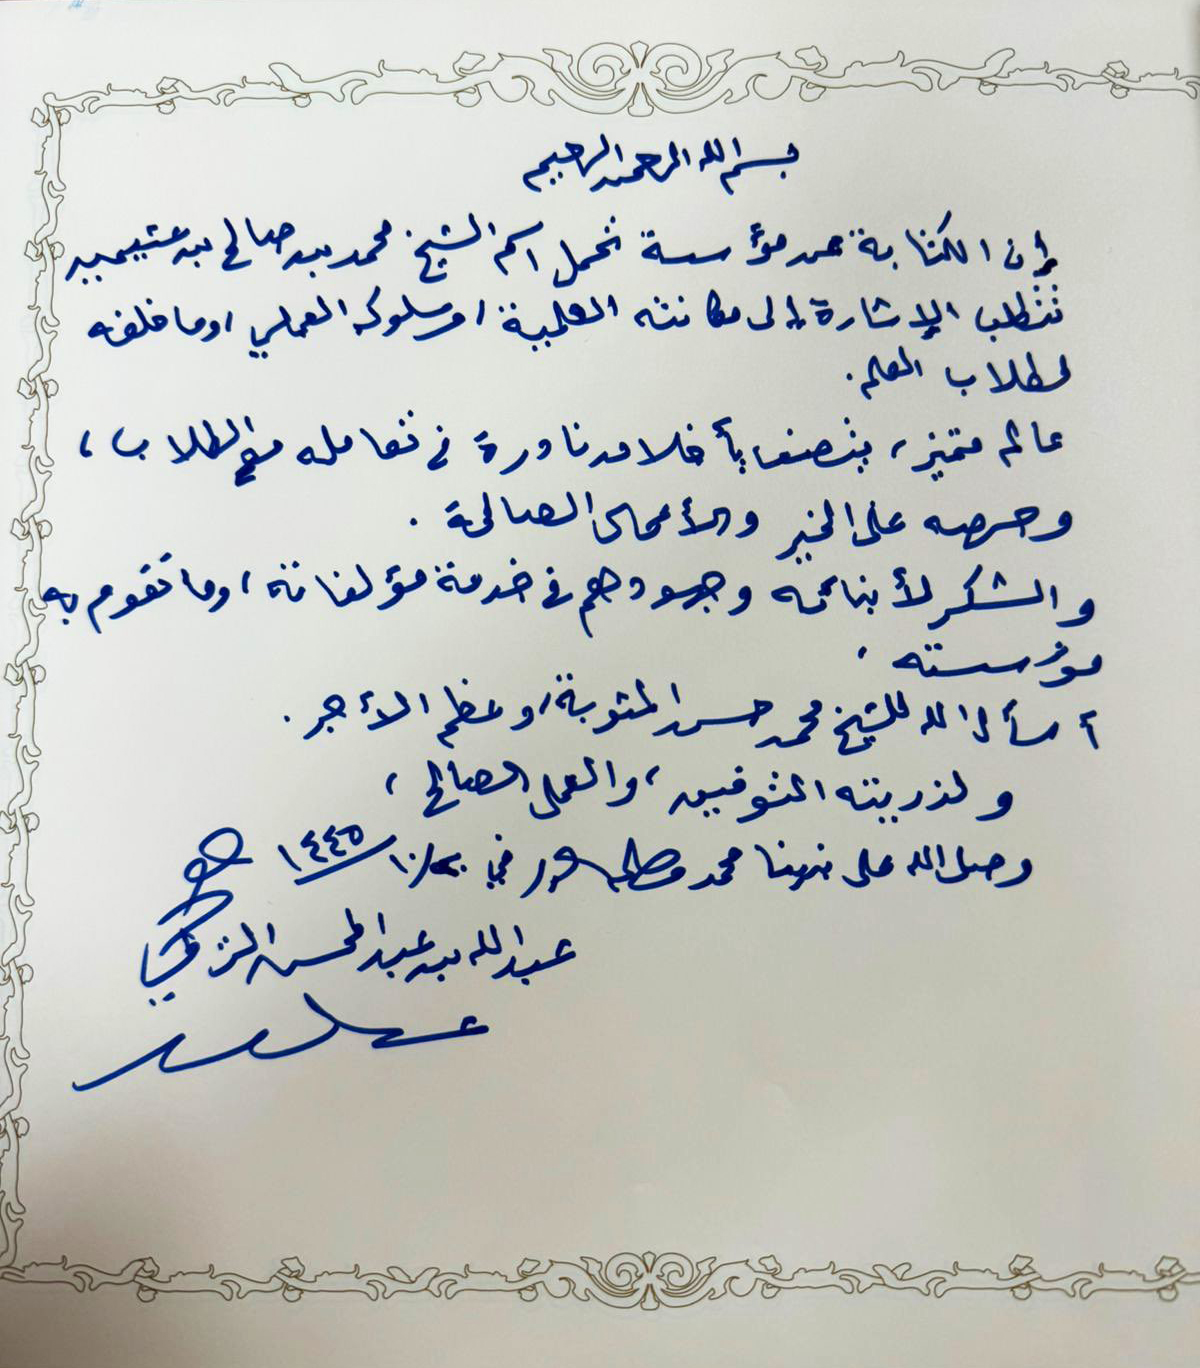 بسم الله الرحمن الرحيم
إن الكتابة عن مؤسسة تحمل اسم الشيخ محمد بن صالح بن عثيمين
تتطلب الإشارة إلى مكانته العلمية، وسلوكه العملي، وما خلفه
لطلاب العلم.
عالم متميز، يتصف بأخلاق نادرة في تعامله مع الطلاب،
وحرصه على الخير والأعمال الصالحة.
والشكر لأبنائه وجهودهم في خدمة مؤلفاته، وما تقوم به
مؤسسته،
أسأل الله للشيخ محمد حسن المثوبة، وعظم الأجر.
ولذريته التوفيق، والعمل الصالح،
وصلى الله على نبينا محمد في ١٤٤٥
عبدالله بن عبدالمحسن التركي